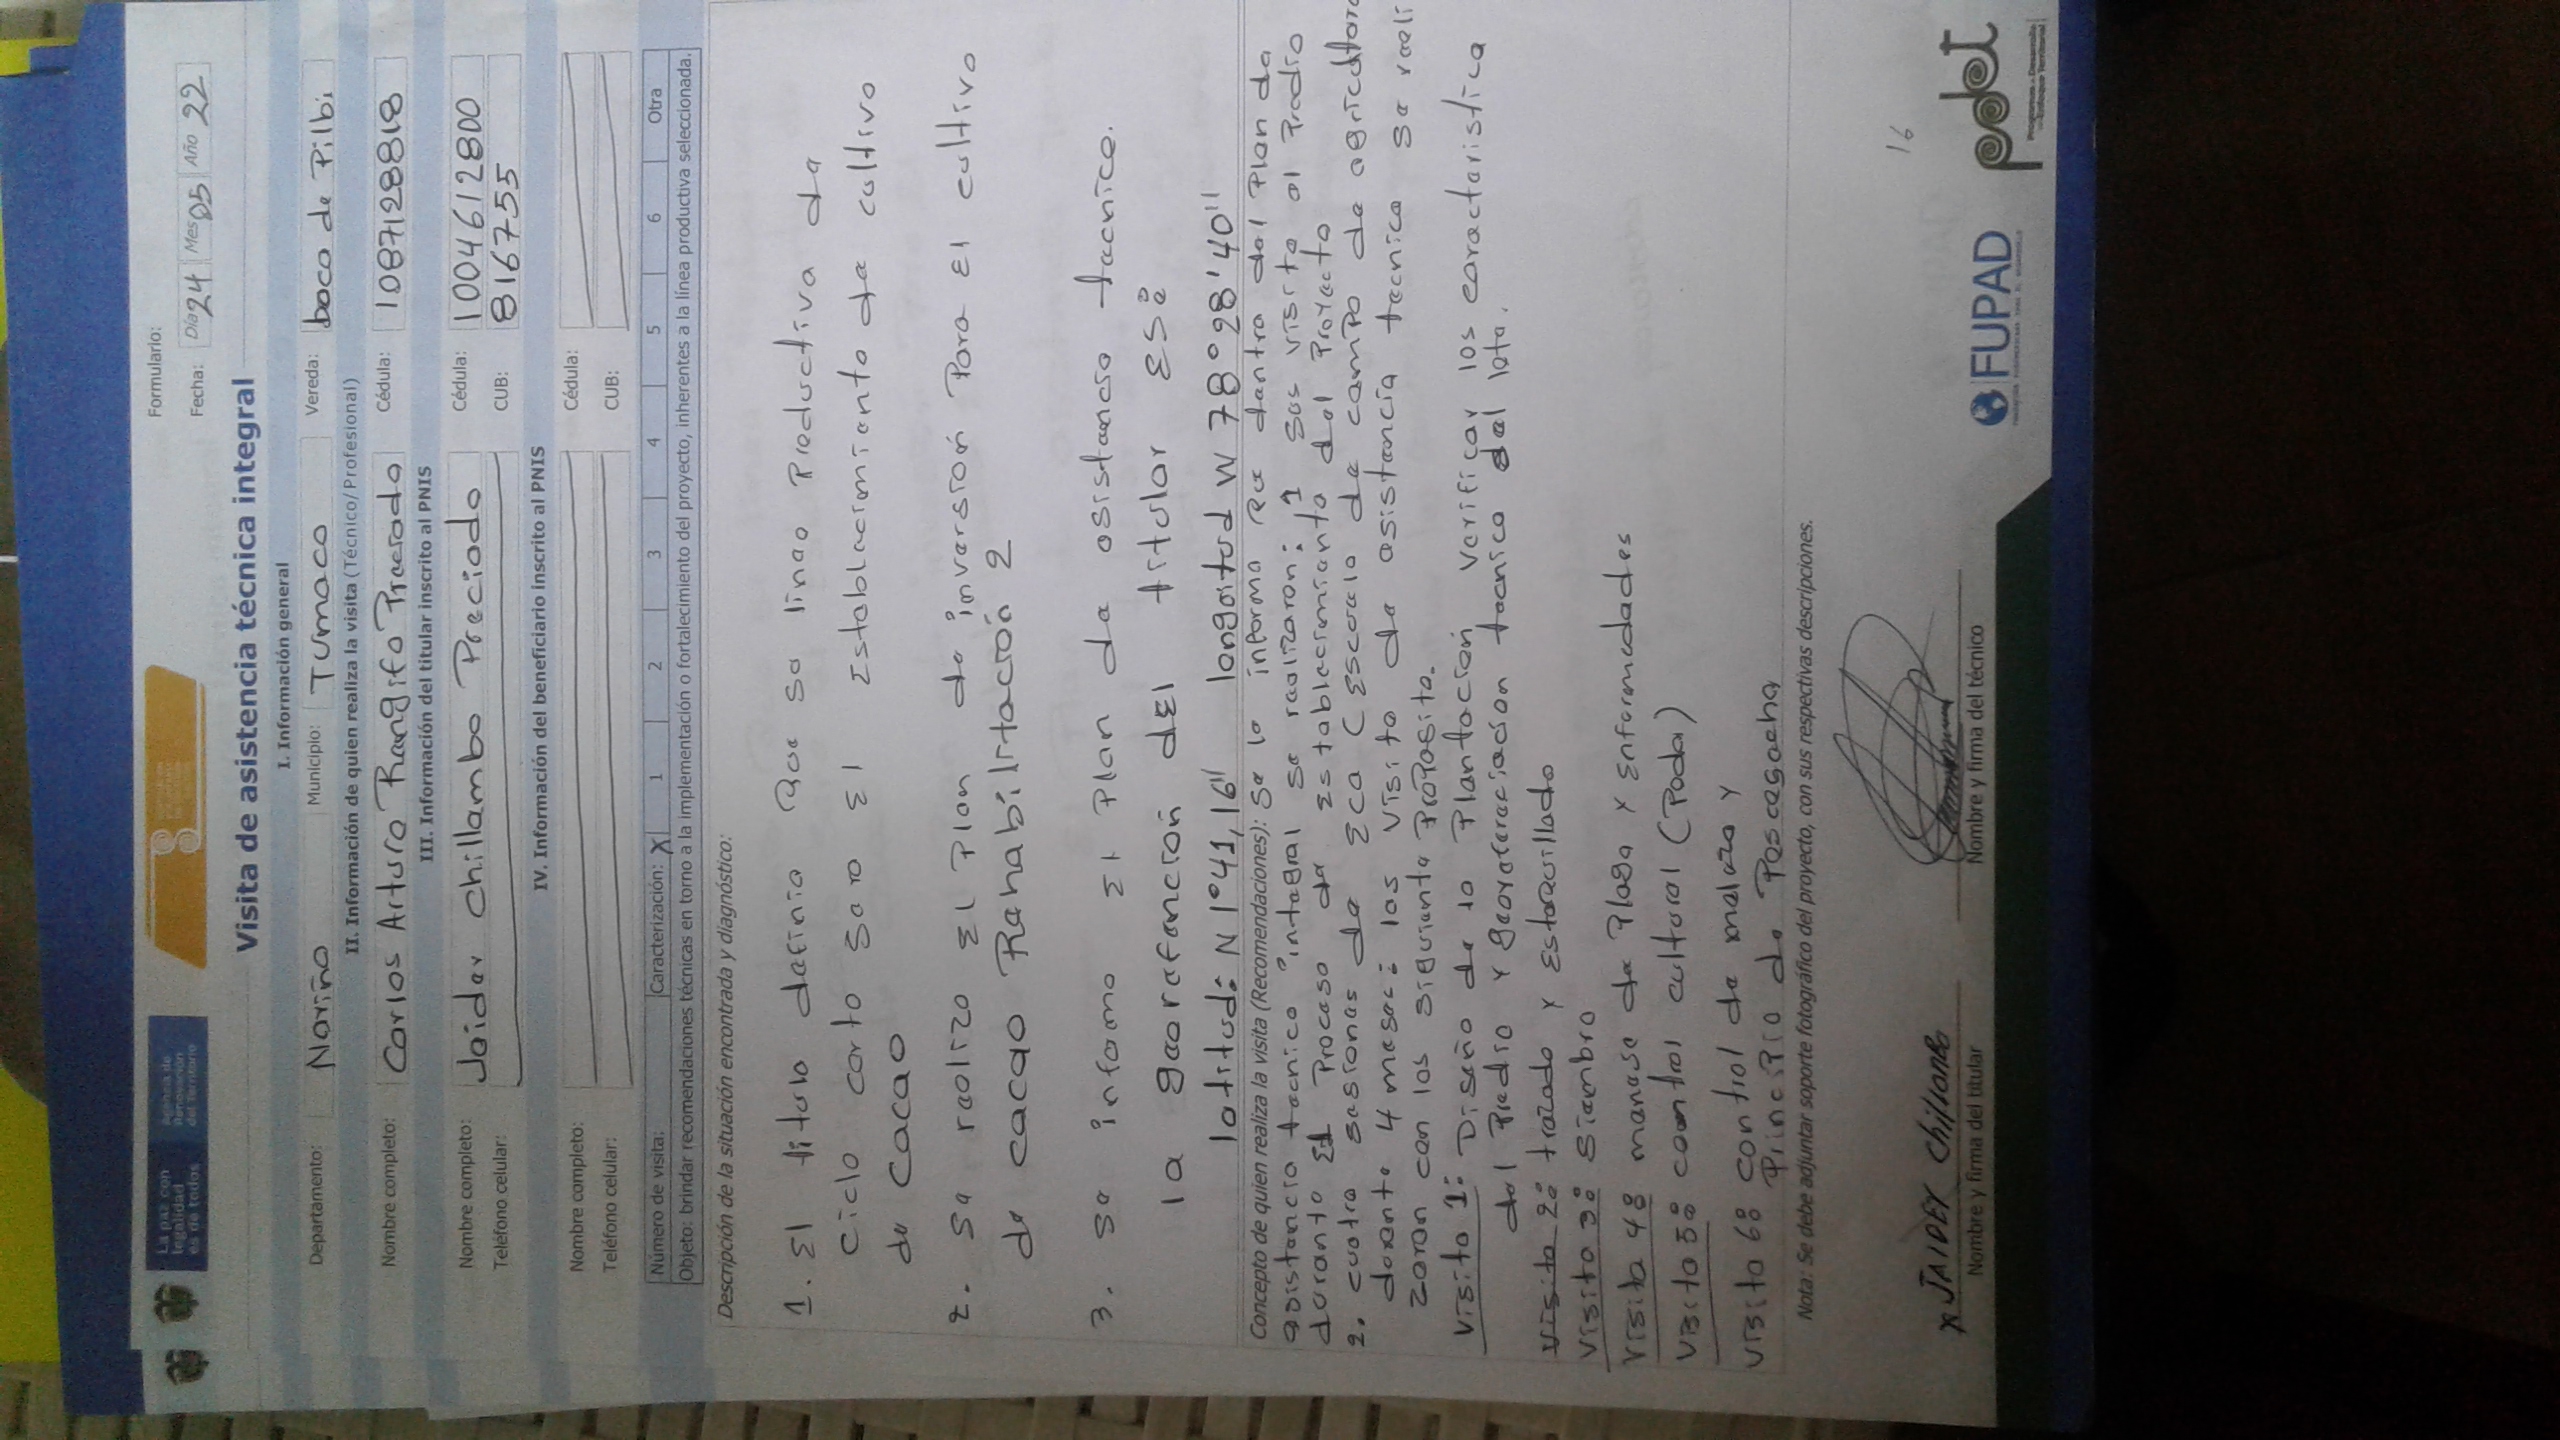 La paz con
legalidad
es de todos
Agencia de
Renovación
del Territorio
Formulario:
Fecha: Día 24 Mes 05 Año 22
Visita de asistencia técnica integral
I. Información general
Departamento: Nariño Municipio: Tumaco Vereda: boca de Pilbi
II. Información de quien realiza la visita (Técnico/Profesional)
Nombre completo: Carlos Arturo Rangifo Preciado Cédula: 1087128818
III. Información del titular inscrito al PNIS
Nombre completo: Jaider Chillambo Preciado Cédula: 1004612800
Teléfono celular: CUB: 816755
IV. Información del beneficiario inscrito al PNIS
Nombre completo: Cédula:
Teléfono celular: CUB:
Número de visita: Caracterización: X 1 2 3 4 5 6 Otra
Objeto: brindar recomendaciones técnicas en torno a la implementación o fortalecimiento del proyecto, inherentes a la línea productiva seleccionada.
Descripción de la situación encontrada y diagnóstico:
1. El titulo definio Que sa linao Productiva de
Ciclo corto sera El Establecimiento de cultivo
de Cacao
2. Se realizo El Plan de inversión Para El cultivo
de cacao Rehabilitación 2
3. Se informo El Plan de asistencia tecnica.
la georefención dEl titular ES:
latitud: N 1°41,16" longoitud W 78°28'40"
Concepto de quien realiza la visita (Recomendaciones): Se le informo que dentro del Plan de
asistencia tecnica integral se realizaron: 1 Sas visita al Predio
durante El Proceso de Establecimiento del Proyecto
2. cuatro sesiones de ECA (Escuela de campo de agricultore
durante 4 meses: las visita de asistencia tecnica se reali
zaran con los siguiente PROPOSito.
Visita 1: Diseño de la Plantación verificar los caracteristica
del Predio y georeferenciación tecnico del lote.
Visita 2: trazado y Estaquillado
Visita 3: Siembro
Visita 4: manase de Plaga y Enfermedades
Visita 5: control cultural (Poda)
Visita 6: control de maleza y
Principio de Poscosecha
Nota: Se debe adjuntar soporte fotográfico del proyecto, con sus respectivas descripciones.
x JAIDER Chillamb
Nombre y firma del titular Nombre y firma del técnico
16
FUPAD
pdet
Programas de Desarrollo
con Enfoque Territorial